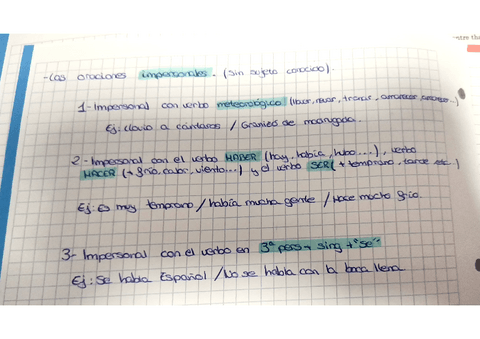 entre the
-Las oraciones impersonales. (sin sujeto conocido).
1- Impersonal con verbo meteorológico (llover, nevar, tronar, amanecer, anochecer...)
Ej: llovía a cántaros / Granizó de madrugada.
2- Impersonal con el verbo HABER (hay, había, hubo...), verbo
HACER (+ frío, calor, viento...) y el verbo SER (+ temprano, tarde etc..)
Ej: Es muy temprano / había mucha gente / Hace mucho frío.
3- Impersonal con el verbo en 3ª pers → sing + "se"
Ej: Se habla Español / No se habla con la boca llena